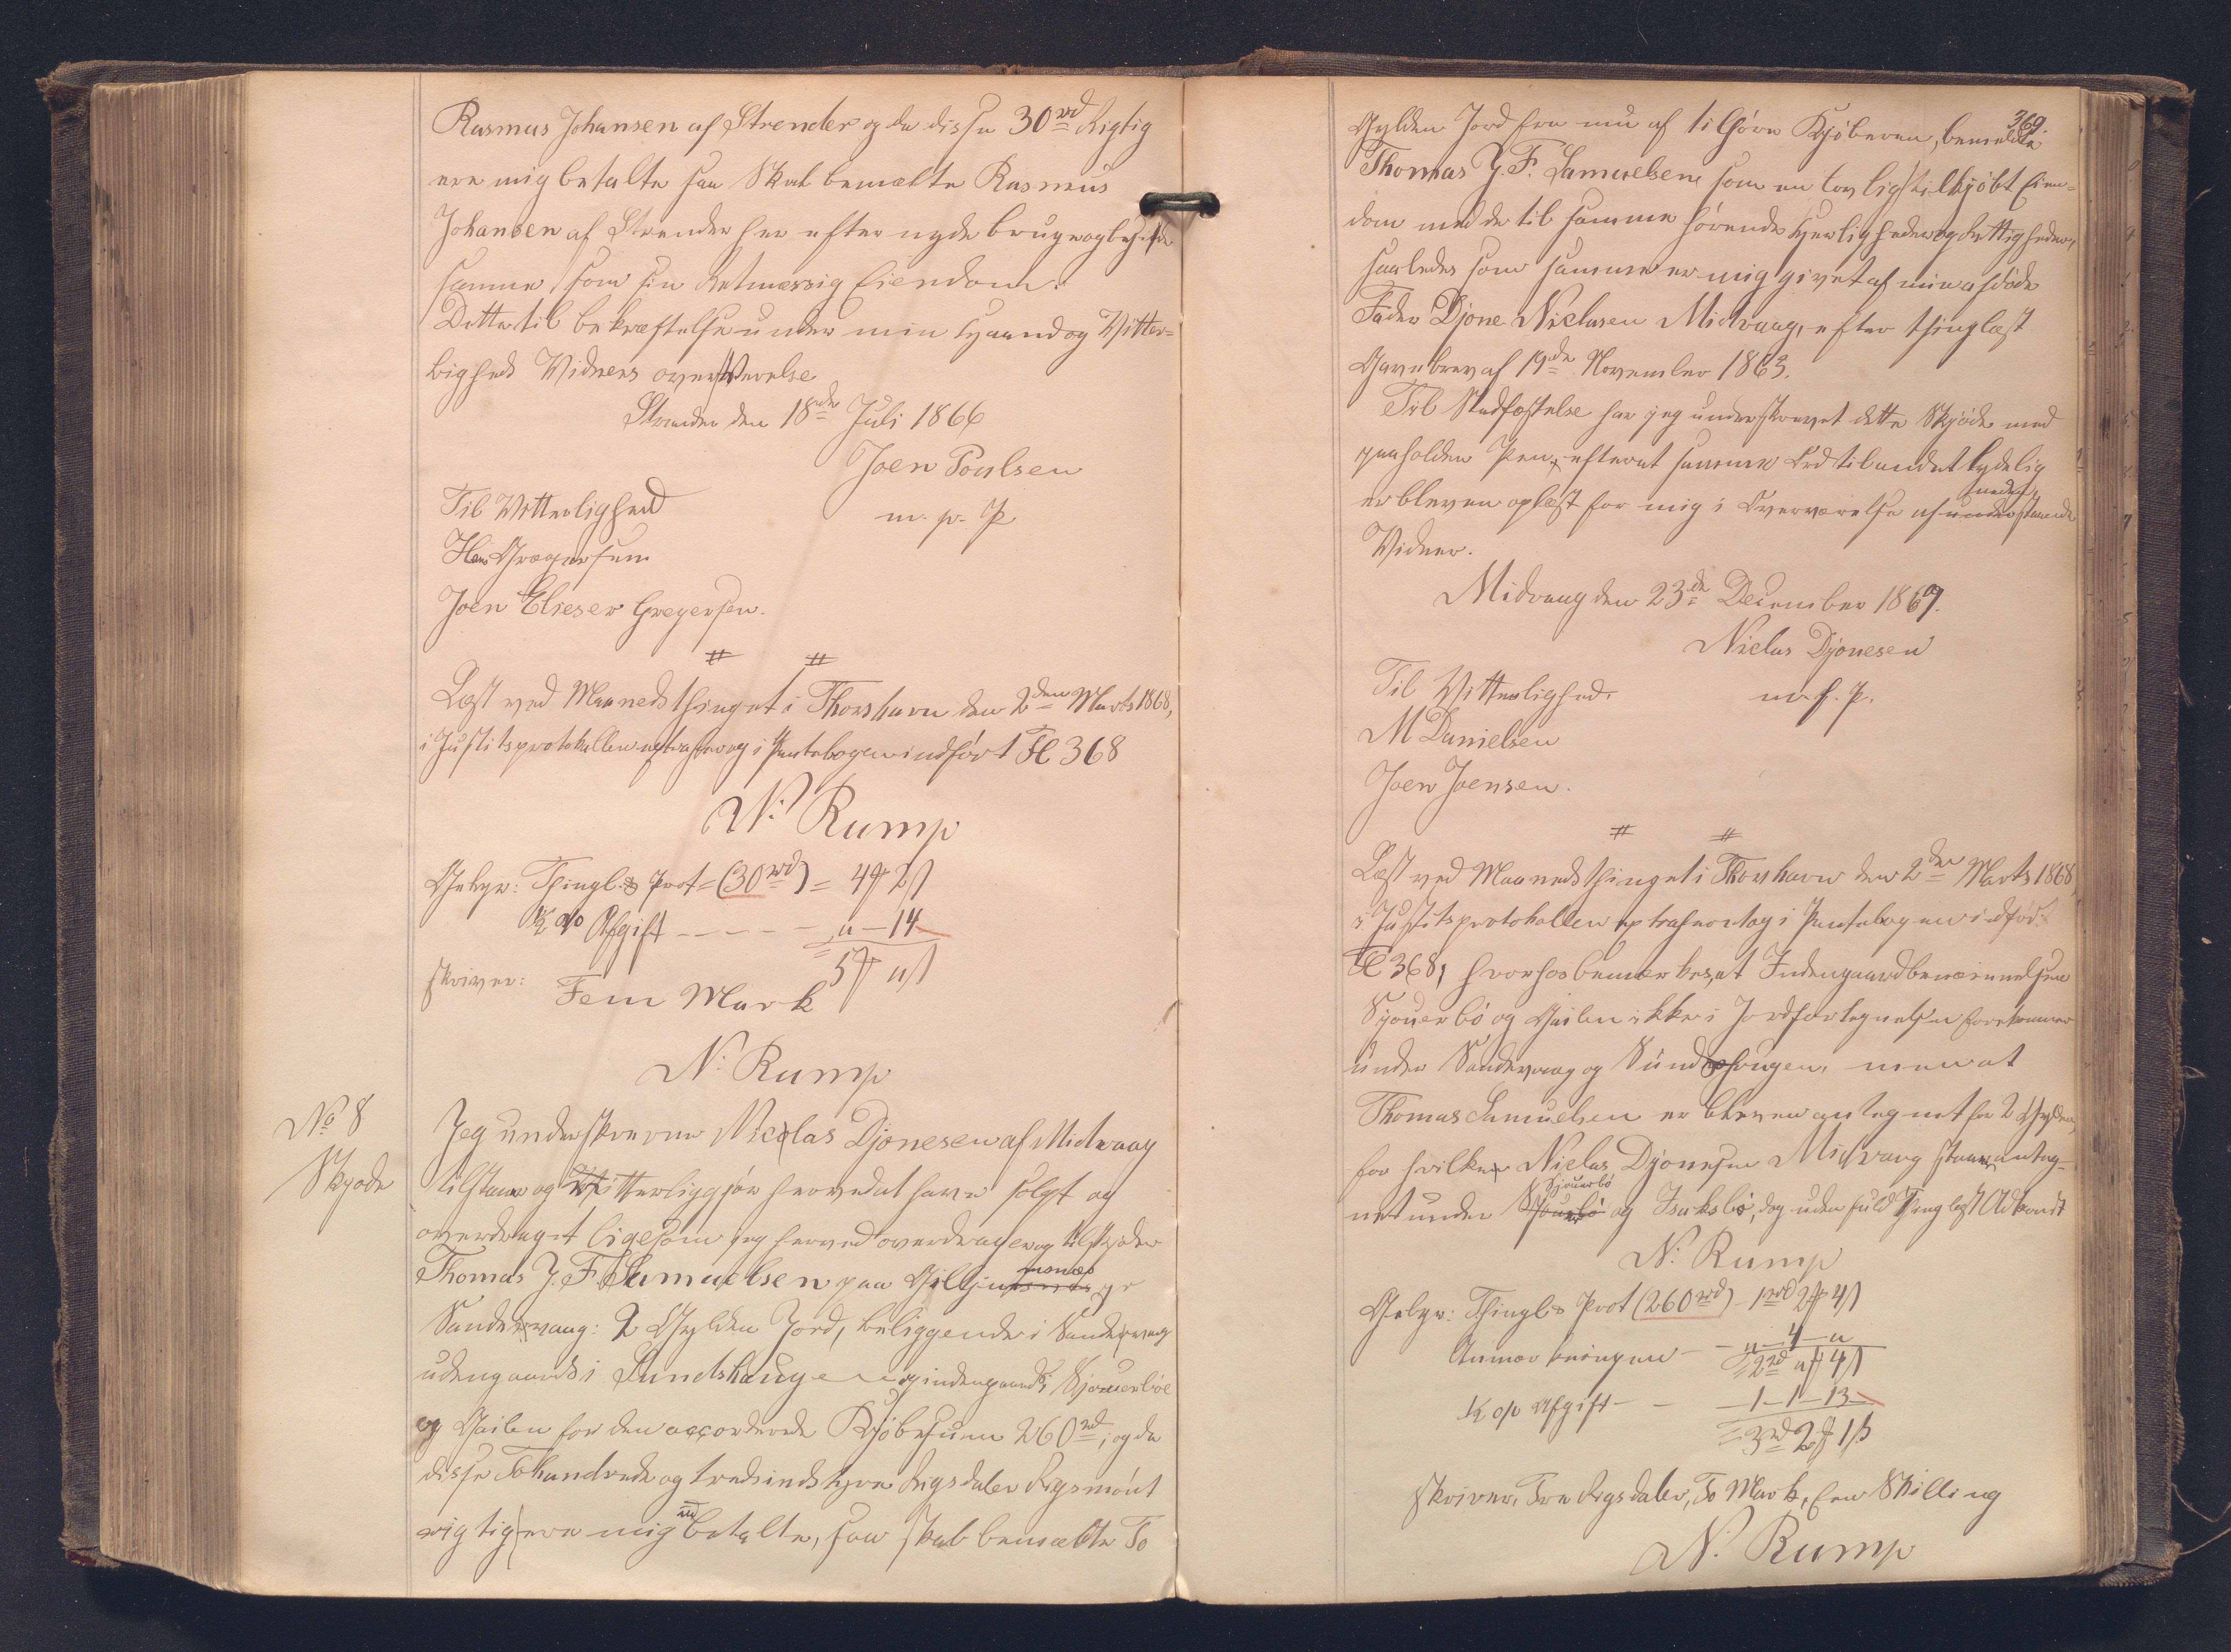 Rasmus Johansen af Strender og da disse 30rd Rigtig
ere mig betalte saa Skal bemælte Rasmus
Johansen af Strender her efter nyde bruge og besidde
samme som sin Retmæssig Eiendom.
Dette til bekræftelse under min Haand og Vitter=
ligheds Vidners overværelse
Strender den 18de Juli 1866
Joen Poulsen
m. p. P
Til Vitterlighed
Joen Elieser Gregersen.
Læst ved Maanedsthinget i Thorshavn den 2den Marts 1868,
i Justitsprotokollen extraheret og i Pantebogen indført Fol 368
N. Rump
Gebyr: Thingl. & Prot = (30rd) = 4 ₰ 2 ß
½ % Afgift - - - - - " - 14
5 ₰ " ß
skriver: Fem Mark
N. Rump
No 8
Skjøde
Jeg underskrevne Nicolas Djonesen af Midvaag
tilstaar og Vitterliggjør herved at have solgt og
overdraget ligesom jeg herved overdrager og tilskjøder
Thomas J. F. Samuelsen paa Giljumsnæs
Sandevaag: 2 Gylden Jord, beliggende i Sandevaag
udengaards i Sundshauge og indengaards i Sjouerböe
og Gailen for den accorderede Kjøbesum 260rd; og da
disse Tohundrede og tredsindstyve Rigsdaler Rigsmönt
rigtig ere mig betalte, saa skal bemælte To
369
Gylden Jord fra nu af tilhøre Kjøberen, bemeldte
Thomas J. F. Samuelsen som en lovlig tilkjøbt Eien=
dom med de til samme hørende Herligheder og Rettigheder,
saaledes som samme er mig givet af min afdøde
Fader Djone Niclasen Midvaag, efter thinglæst
Gavebrev af 19de November 1863.
Til Stadfæstelse har jeg underskrevet dette Skjøde med
paaholden Pen, efterat samme Ord til andet tydelig
er bleven oplæst for mig i Overværelse af nedenstaaende
Vidner.
Midvaag den 23de December 1869.
Niclas Djonesen
m. f. P.
Til Vitterlighed.
M Danielsen
Joen Joensen.
Læst ved Maanedsthinget i Thorshavn den 2den Marts 1868
i Justitsprotokollen extraheret og i Pantebogen indført
Fol 368, hvorhos bemærkes, at Indengaardbenævnelsen
Sjouerbö og Gailen ikke i Jordfortegnelsen forekommer
under Sandevaag og Sundshaugen, men at
Thomas Samuelsen er bleven antegnet for 2 Gylden,
for hvilke Niclas Djonesen Midvaag staaer anteg-
net under Sjouerbö og Isaksbö, dog uden fuld Thinglæst Adkomst
N. Rump
Gebyr: Thingl & Prot (260rd) - 1rd 2 ₰ 4 ß
Anmærkningen - " - 4 - "
2rd " ₰ 4 ß
½ % Afgift - - 1 - 1 - 13
3rd 2 ₰ 1 ß
skriver, Tre Rigsdaler, To Mark, Een Skilling
N. Rump